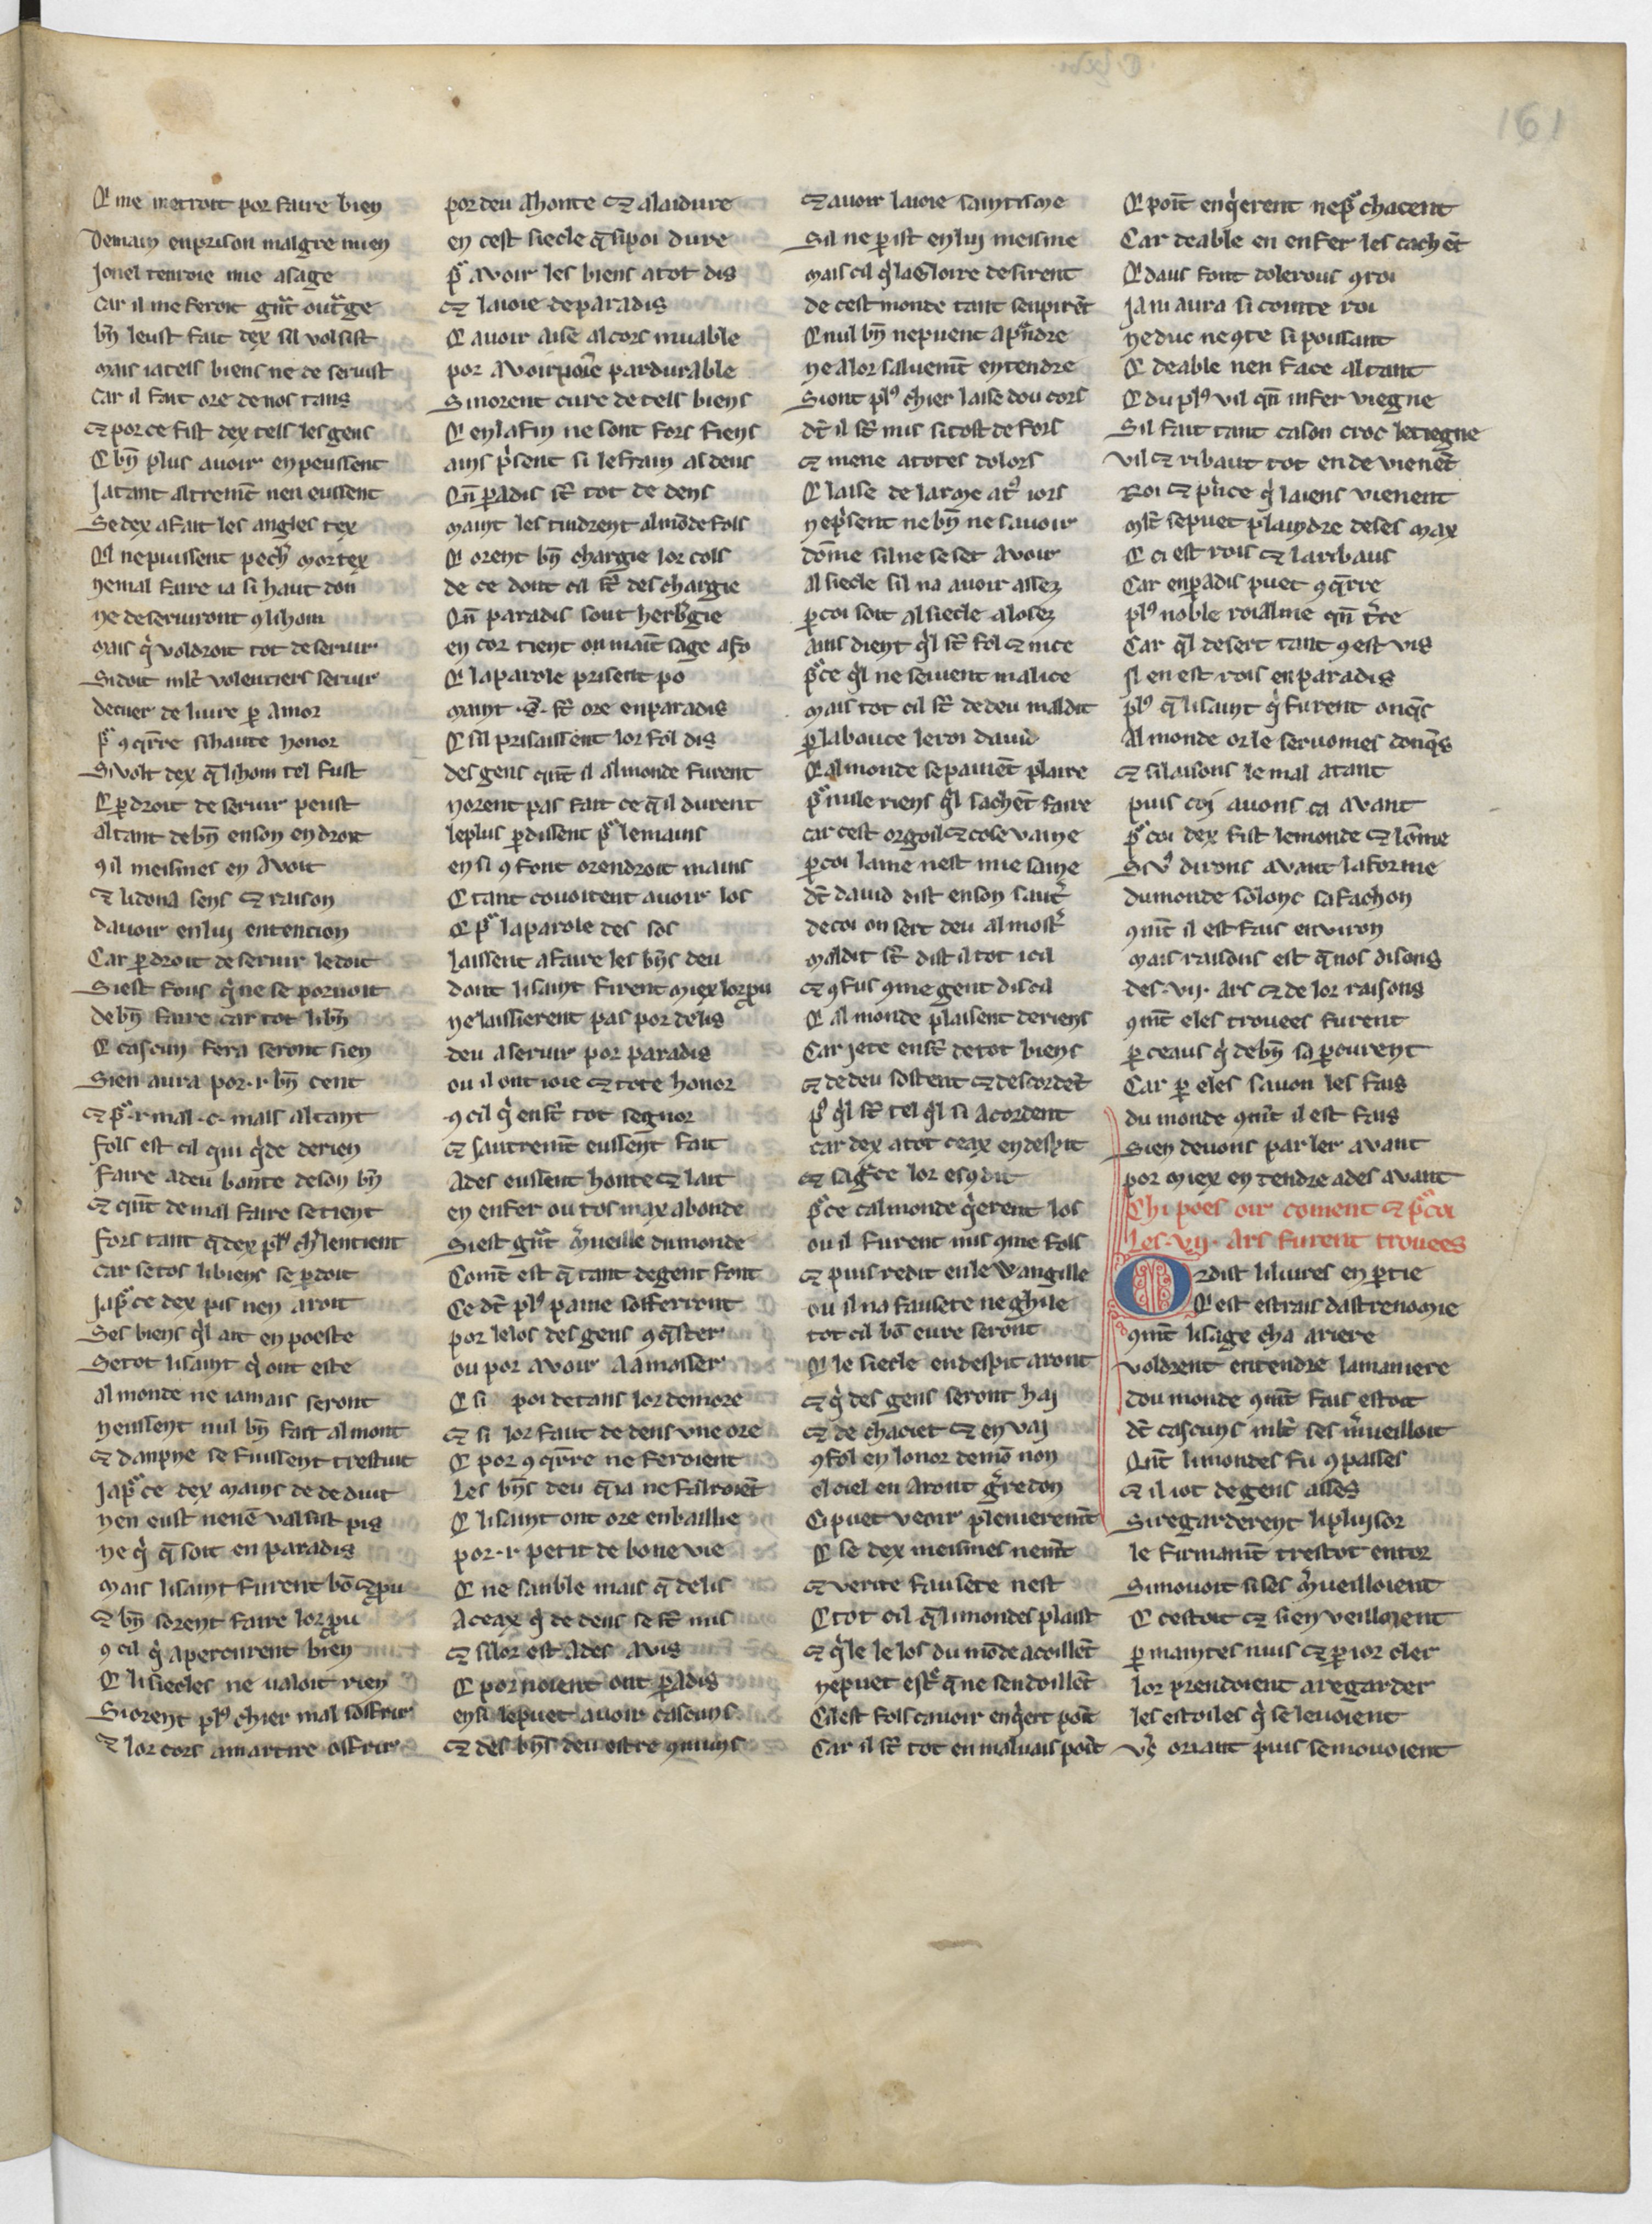 161
Q me metroit por faire bien
Demain enprison malgre mien
Jonel tenroie mie asage
Car il me feroit gnt outrge
bn leust fait dex sil volsist
mais iatels biens ne de servist
Car il fait ore de nos tans
⁊ por ce fist dex tels les gens
Q bn plus avoir en peussent
Jatant altremt nen eussent
Se dex afait les angles tex
Ql nepuissent pechr mortex
nemal faire ia si haut don
ne deserviront 9 lihom
mais q voldroit tot deservir
Sidoit mlt volentiers servir
decuer de livre p amor
p 9qrre sihaute honor
Sivolt dex q lihom tel fust
Q pdroit deservir peust
altant de bn enson endroit
9 il meismes en avoit
⁊ lidona sens ⁊ raison
davoir enlui entencion
Car pdroit deservir ledoit
Siest fous q ne se porvoit
de bn faire car tot libn
Q cascun fera seront sien
Sien aura por .i. bn cent
⁊ p .i. mal .c. mals altant
fols est cil qui qde derien
faire adeu bonte deson bn
⁊ qnt de mal faire setient
fors tant q dex pl9 chr lentient
Car setos libiens se pdoit
Jap ce dex pis nen aroit
Ses biens ql ait en poeste
Setot lisaint q ont este
al monde ne iamais seront
neussent nul bn fait almont
⁊ danpne se fuissent trestuit
Jap ce dex mains de deduit
nen eust nene valsist pis
ne q q soit en paradis
mais lisaint furent bo ⁊ pu
⁊ bn sorent faire lor pu
9 cil q apercurent bien
Q lisiecles ne valoit rien
Siorent pl9 chier mal soffrir
⁊ lor cors amartire offrir
por deu ahonte ⁊ alaidure
en cest siecle q sipoi dure
p avoir les biens atot dis
⁊ laioie deparadis
Q avoir aise alcors muable
por avoir ioie pardurable
Sinorent cure de tels biens
Q enlafin ne sont fors fiens
ains psent si lefrain asdens
Qn padis st tot de dens
maint les tindrent almode fols
Q orent bn chargie lor cols
de ce dont cil st deschargie
Qn paradis sont herbgie
encor tient on mait sage afo
Q laparole prisent po
maint .s. st ore enparadis
Q sil prisaissent lor fol dis
des gens qnt il almonde furent
norent pas fait ce q il durent
leplus pdissent p lemains
ensi 9 font orendroit mains
Q tant covoitent avoir los
Q p laparole des sos
Laissent afaire les bns deu
dont lisaint firent miex lor pu
ne laissierent pas por delis
deu aservir por paradis
ou il ont ioie ⁊ tote honor
9 cil q enst tot segnor
⁊ sautremt eussent fait
Ades eussent honte ⁊ lait
en enfer ou tos max abonde
Siest gnt mveille du monde
Comt est q tant degent font
Ce dt pl9 paine sofferront
por lelos des gens 9qster
ou por avoir aamasser
Q si poi detans lor demore
⁊ si lor faut de dens une ore
Q por 9qrre ne feroient
Les bns deu q ia ne falroiet
Q lisaint ont ore enbaillie
por .i. petit de bone vie
Q ne sanble mais q delis
Aceax q de dens se st mis
⁊ silor est ades avis
Q por noient ont padis
ensi lepuet avoir cascuns
⁊ des bns deu estre 9muns
⁊ avoir laioie saintisme
Sil ne pist enlui meisme
mais cil q lagloire desirent
de cest monde tant sospiret
Q nul bn nepuent apndre
ne alor salvemt entendre
Siont pl9 chier laise dou cors
dt il st mis sitost de fors
⁊ mene atotes dolors
Q laise de larme at9 iors
nepsent ne bn ne savoir
dome silne se set avoir
al siecle sil na avoir assez
pcoi soit alsiecle alosez
Ains dient ql st fol ⁊ nice
pce ql ne sevent malice
mais tot cil st de deu maldit
p labouce leroi davi
Qalmonde sepaiuet plaire
p nisle riens ql sachet faire
car cest orgoil ⁊ cose vaine
pcoi lame nest mie saine
dt david dist enson saut
decoi on sert deu almost
maldit st dist il tot icil
⁊ 9fus 9me gent discil
Q al monde plaisent deriens
Car jete enst detot biens
⁊ de deu sostent ⁊ descordet
p ql st tel ql si acordent
car dex atot ceax endespit
⁊ sagree lor escdit
pce calmonde qerent los
ou il furent mis 9me fols
⁊ puis redit enle wangille
ou il na fausete ne ghile
tot cil bo eure seront
Q le siecle endespit aront
⁊ q des gens seront hai
⁊ de chaciet ⁊ envai
9fol en lonor demo non
el ciel en aront gredon
Cipuet veoir plenieremt
Q se dex meismes nemt
⁊ verite fausete nest
Q tot cil q limondes plaist
⁊ qle le los du mode acoillet
nepuet estr q ne sendoillet
Cilest fols cavoir enqert poit
Car il st tot en malvais poit
Q poit enqerent nep chacent
Car deable en enfer les cachet
Q daus font dolerous 9roi
Ja ni aura si cointe roi
ne duc ne 9te si poissant
Q deable nen face altant
Q du pl9 vil qn infer viegne
Sil fait tant cason croc letiegne
vil ⁊ ribaut tot en de vienet
Roi ⁊ price q laiens vienent
mlt sepuet plaindre deses max
Q ci est rois ⁊ la ribaus
Car enpadis puet 9qrre
pl9 noble roialme qn tre
Car ql desert tant 9 est vis
Sl en est rois enparadis
pl9 q lisaint q furent onqs
Al monde or le servomes donqs
⁊ silaisons le mal atant
puis coi avons ca avant
p coi dex fist lemonde ⁊ lome
Si v9 dirons avant la forme
du monde solonc sa fachon
9mt il est fais environ
mais raisons est q nos disons
des .vij. ars ⁊ de lor raisons
9mt eles trovees furent
p ceaus q debn sa pcurent
Car p eles savon les fais
du monde 9mt il est fais
Sien devons parler avant
por miex entendre ades avant
Chi poes oir coment ⁊ pcoi
les .vij. ars furent trovees
Ordist lilivres en ptie
Q est estrais dastrenomie
9mt lisage cha ariere
voldrent entendre lamaniere
Dou monde 9mt fais estoit
dt cascuns mlt ses mveilloit
Qnt limondes fu 9passes
⁊ il iot degens asses
Siregarderent liplusor
le firmamt trestot entor
Simovoit si ses mveilloient
Q cestoit ⁊ sien veilloient
p maintes nuis ⁊ p ior cler
lor prendoient aregarder
les estoiles q se levoient
vs oriant puis semovoient